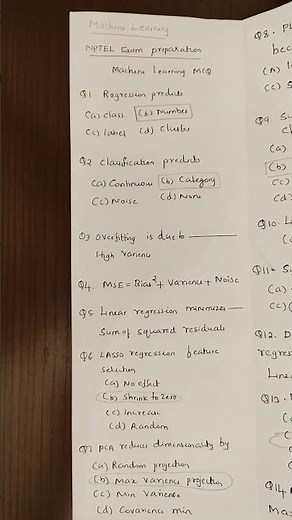 Machine Learning
NPTEL Exam preparation
Machine Learning MCQ
Q1 Regression predicts
(a) class (b) Number
(c) label (d) Cluster
Q2 Classification predicts
(a) Continuous (b) Category
(c) Noise (d) None
Q3 Overfitting is due to ———
High Varience
Q4. MSE = Bias² + Varience + Noise
Q5 Linear regression minimizes ———
Sum of squared residuals
Q6 LASSO regression feature
selection
(a) No effect
(b) Shrink to Zero
(c) Increase
(d) Random
Q7 PCA reduces dimensionality by
(a) Random projection
(b) Max Varience projection
(c) Min Varience
(d) Covarience min
Q8.
(c)
Q9.
(a)
(b)
(c)
(d)
Q10.
Q11.
(a)
(c)
Q12.
regres
Line
Q13.
Q14
Ma